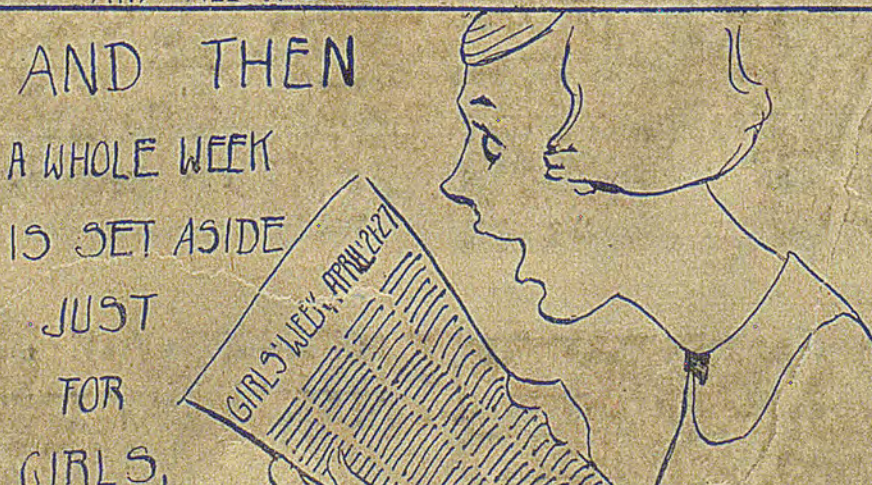 AND THEN
A WHOLE WEEK
IS SET ASIDE
JUST
FOR
GIRLS,
GIRLS' WEEK, APRIL 21-27